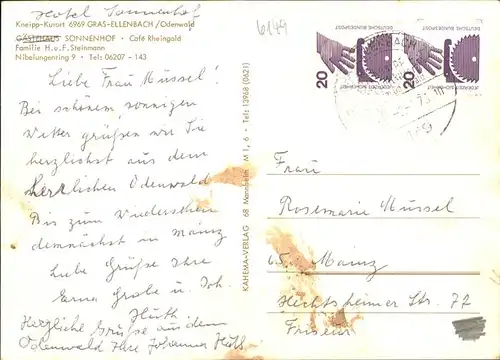 Hotel Sonnenhof
Kneipp-Kurort 6969 GRAS-ELLENBACH/Odenwald
GÄSTEHAUS SONNENHOF • Café Rheingold
Familie H. u. F. Steinmann
Nibelungenring 9 • Tel: 06207 - 143
6149
Liebe Frau Mussel!
Bei schönem sonnigen
Wetter grüßen wir Sie
herzlichst aus dem
herrlichen Odenwald
Bis zum Wiedersehen
demnächst in Mainz
Liebe Grüße Ihre
Erna Grabe u. Joh.
Huth
Herzliche Grüße aus dem
Odenwald Ihre Johanna Huth
KAHEMA-VERLAG 68 Mannheim M 1, 6 • Tel: 13968 (0621)
20
DEUTSCHE BUNDESPOST
JEDERZEIT SICHERHEIT
20
DEUTSCHE BUNDESPOST
JEDERZEIT SICHERHEIT
Frau
Rosemarie Mussel
65 Mainz
Hechtsheimer Str. 77
Friseur